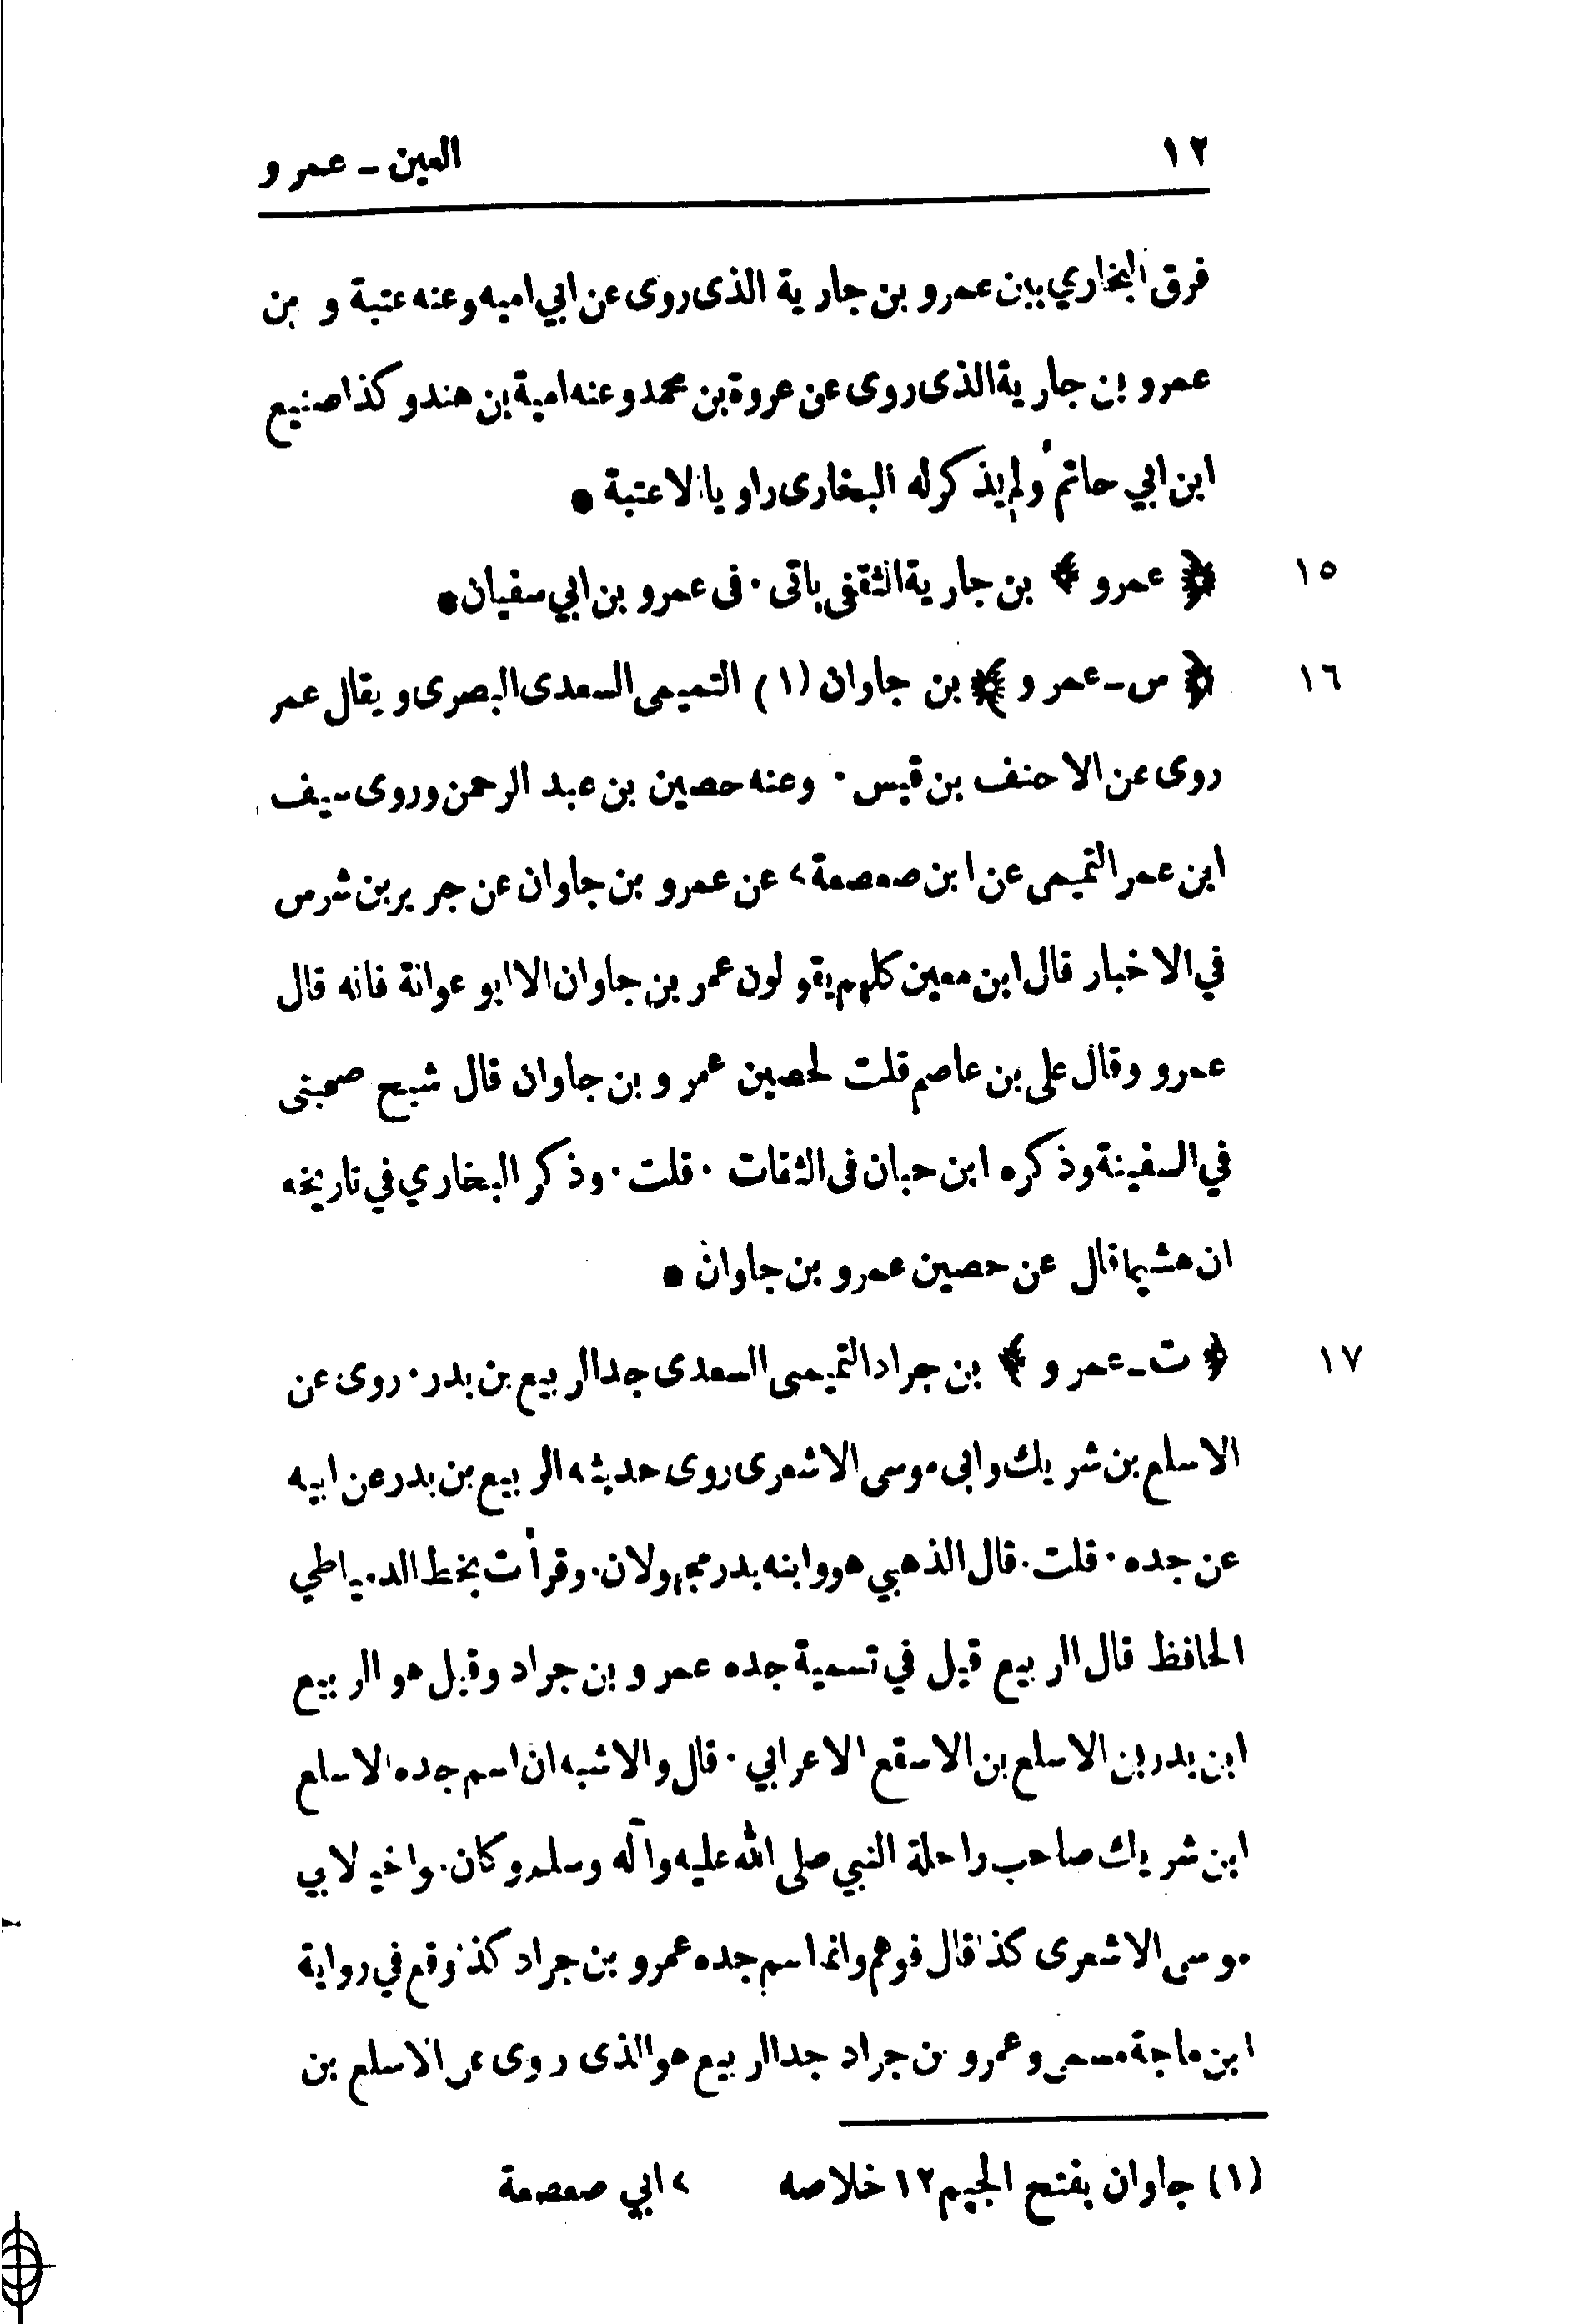 ١٢ العين - عمرو
فرق البخاري بين عمرو بن جارية الذى روى عن ابي اميه وعنه عتبة و بين
عمرو بن جارية الذى روى عن عروة بن محمد وعنه امية بن هند وكذا صنيع
ابن ابي حاتم ولم يذكر له البخارى راويا الا عتبة *
١٥ ﴿ عمرو ﴾ بن جارية الثقفى ياتى . فى عمرو بن ابي سفيان *
١٦ ﴿ س - عمرو ﴾ بن جاوان (١) التميمى السعدى البصرى ويقال عمر
روى عن الاحنف بن قيس . وعنه حصين بن عبد الرحمن وروى سيف
ابن عمر التميمى عن ابن صعصعة > عن عمرو بن جاوان عن جرير بن شرس
في الاخبار قال ابن معين كلهم يقولون عمر بن جاوان الا ابو عوانة فانه قال
عمرو وقال على بن عاصم قلت لحصين عمرو بن جاوان قال شيخ صحبنى
في السفينة وذكره ابن حبان فى الثقات . قلت . وذكر البخاري في تاريخه
ان هشيما قال عن حصين عمرو بن جاوان *
١٧ ﴿ ت - عمرو ﴾ بن جراد التميمى السعدى جد الربيع بن بدر . روى عن
الاسلع بن شريك وابى موسى الاشعرى روى حديثه الربيع بن بدر عن ابيه
عن جده . قلت . قال الذهبي هو وابنه بدر مجهولان . وقرأت بخط الدمياطي
الحافظ قال الربيع قيل في تسمية جده عمرو بن جراد وقيل هو الربيع
ابن بدر بن الاسلع بن الاسقع الاعرابي . قال والاشبه ان اسم جده الاسلع
ابن شريك صاحب راحلة النبي صلى الله عليه وآله وسلم وكان مواخيا لابي
موسى الاشعرى كذا قال فوهم وانما اسم جده عمرو بن جراد كذا وقع في رواية
ابن ماجة مسمى وعمرو بن جراد جد الربيع هو الذى روى عن الاسلع بن
(١) جاوان بفتح الجيم ١٢ خلاصه > ابي صعصعة